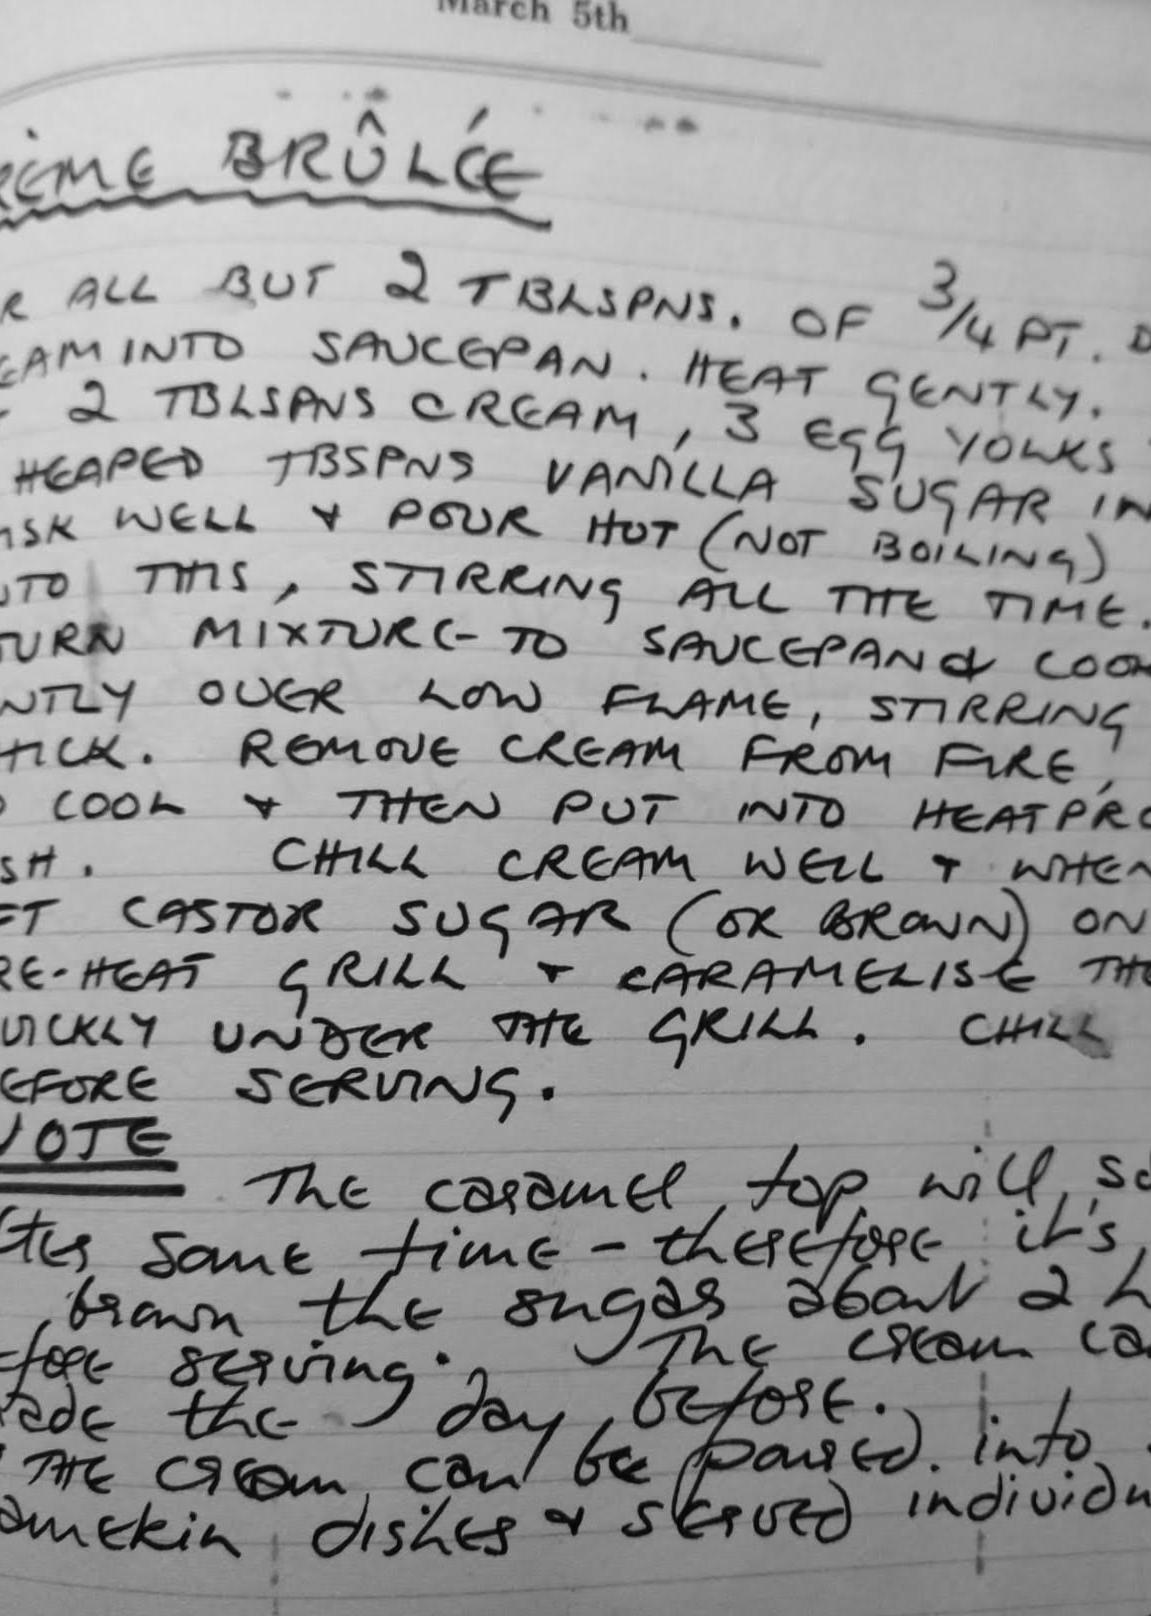 March 5th
RÈME BRÛLÉE
R ALL BUT 2 TBLSPNS. OF 3/4 PT. D
EAM INTO SAUCEPAN. HEAT GENTLY.
2 TBLSPNS CREAM, 3 EGG YOLKS
HEAPED TBSPNS VANILLA SUGAR IN
ISK WELL & POUR HOT (NOT BOILING)
NTO THIS, STIRRING ALL THE TIME.
TURN MIXTURE TO SAUCEPAN & COOK
NTLY OVER LOW FLAME, STIRRING
HICK. REMOVE CREAM FROM FIRE,
O COOL & THEN PUT INTO HEATPRO
SH. CHILL CREAM WELL & WHEN
FT CASTOR SUGAR (OR BROWN) ON
RE-HEAT GRILL & CARAMELISE THE
UICKLY UNDER THE GRILL. CHILL
EFORE SERVING.
NOTE The caramel top will so
fter some time - therefore it's
brown the sugar about 2 h
efore serving. The cream ca
made the day before.
The cream can be poured into
amekin dishes & served individu